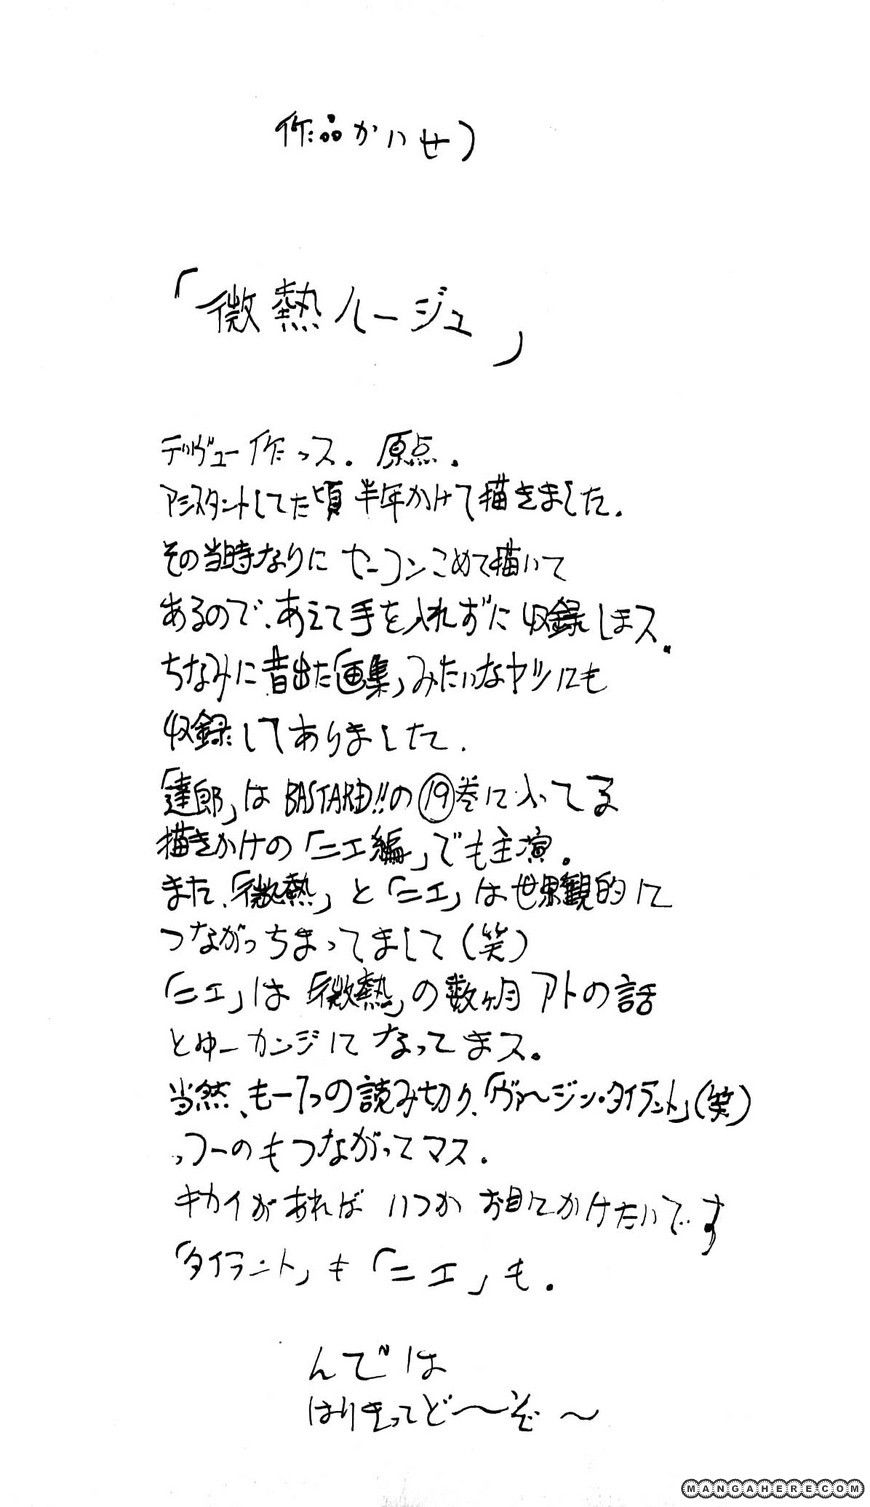 作品かいせつ
「微熱ルージュ」
デヴュー作っス. 原点.
アシスタントしてた頃 半年かけて描きました.
その当時なりに セーコンこめて描いて
あるので、あえて手を入れずに 収録しまス.
ちなみに昔出た「画集」みたいなヤツにも
収録してありました.
「達郎」は BASTARD!!の⑲巻に入ってる
描きかけの「ニエ編」でも主演.
また、「微熱」と「ニエ」は世界観的に
つながっちまってまして(笑)
「ニエ」は「微熱」の数ヶ月アトの話
とゆーカンジになってまス。
当然、もー1つの読み切り、「ヴァ〜ジン・タイラント」(笑)
っつーのもつながってマス.
キカイがあれば いつか お目にかけたいです
「タイラント」も「ニエ」も.
んでは
はりきってど〜ぞ〜
MANGAHERE.COM